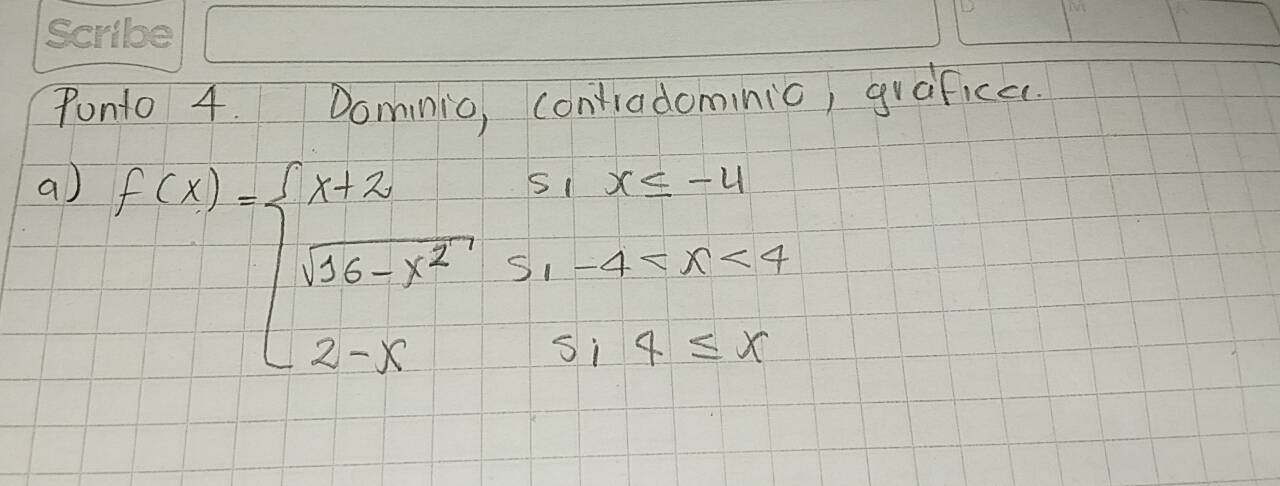 Scribe
D M A
Punto 4. Dominio, contradominio, gráfica.
a) f(x) = { x+2 si x ≤ -4
√16-x² si -4 < x < 4
2-x si 4 ≤ x